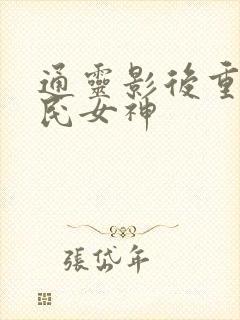 通靈影後重
民女神
張岱年